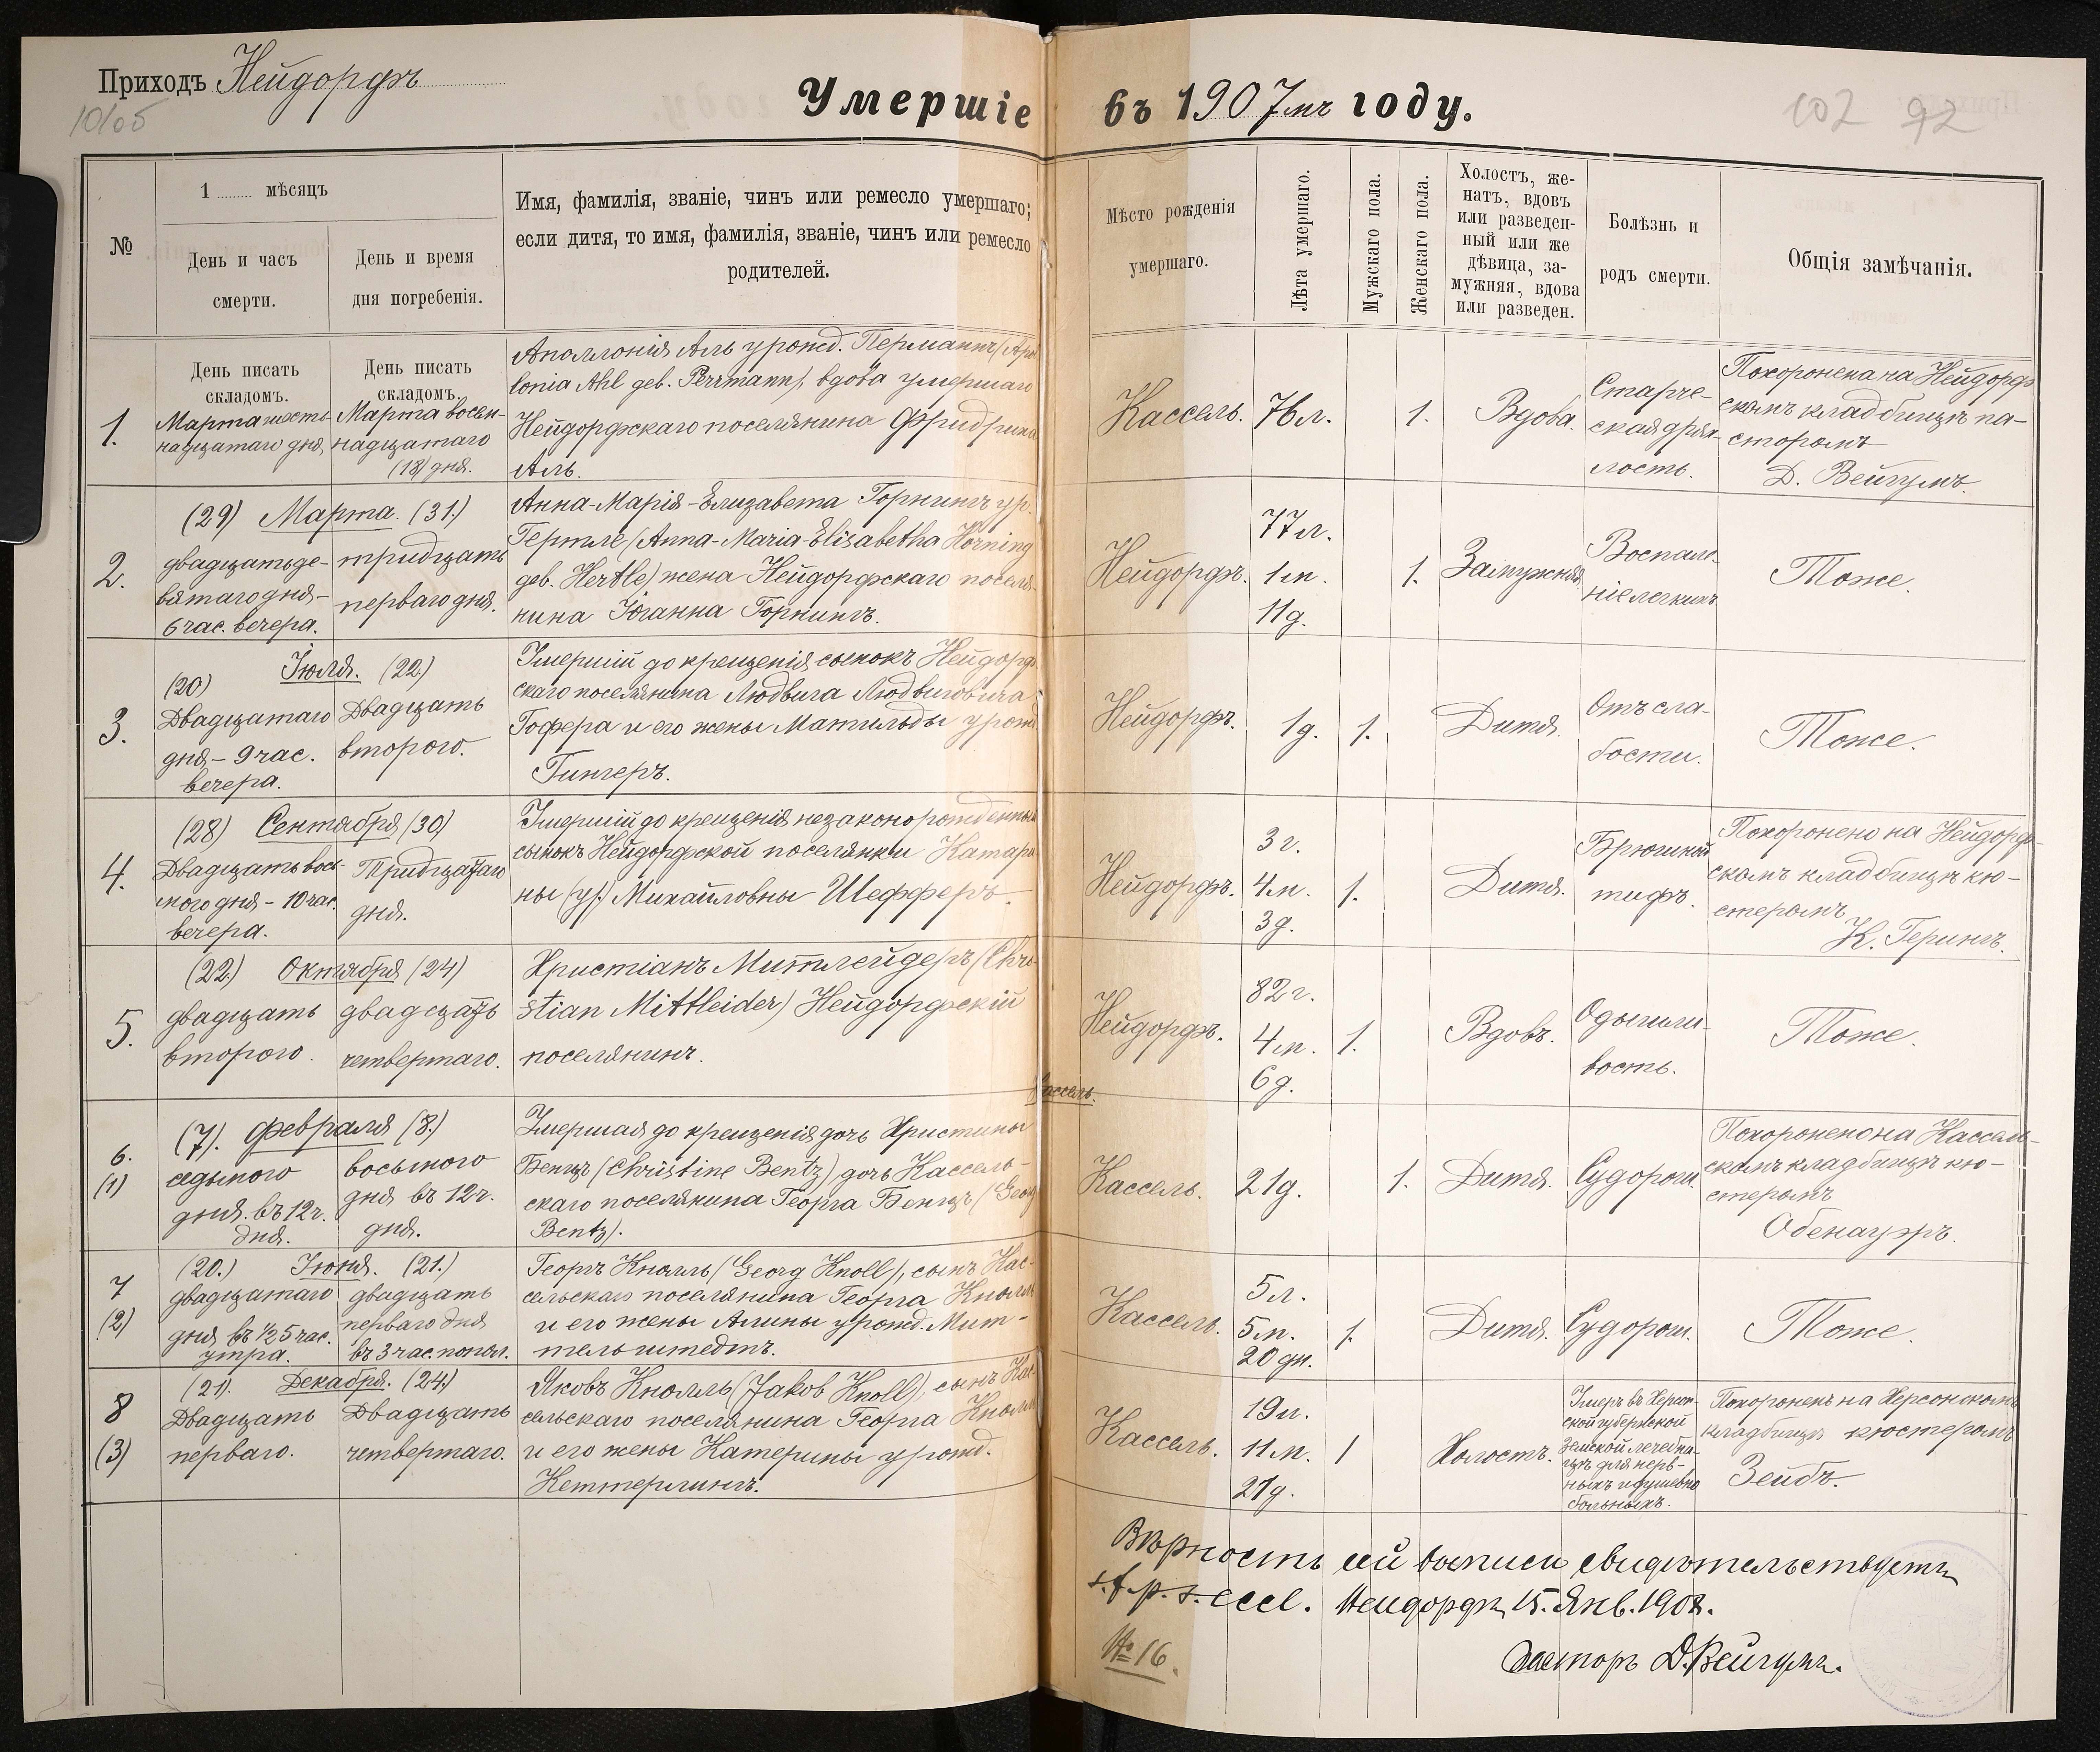 Приходъ Нейдорфъ
Умершіе въ 1907мъ году.
102 92
№
1 мѣсяцъ
День и часъ
смерти.
День и время
дня погребенія.
Имя, фамилія, званіе, чинъ или ремесло умершаго;
если дитя, то имя, фамилія, званіе, чинъ или ремесло
родителей.
Мѣсто рожденія
умершаго.
Лѣта умершаго.
Мужскаго пола.
Женскаго пола.
Холостъ, же-
натъ, вдовъ
или разведен-
ный или же
дѣвица, за-
мужняя, вдова
или разведен.
Болѣзнь и
родъ смерти.
Общія замѣчанія.
День писать
складомъ.
День писать
складомъ.
1.
Марта шест-
надцатаго дня
Марта восем-
надцатаго
(18) дня.
Аполлонія Аль урожд. Перманнъ (Apo
lonia Ahl geb. Perrmann), вдова умершаго
Нейдорфскаго поселянина Фридриха
Аль.
Кассель.
76 л.
1.
Вдова.
Старче-
ская дрях-
лость.
Похоронена на Нейдорф
скомъ кладбищѣ па-
сторомъ
Д. Вейгумъ.
2.
(29) Марта. (31.)
двадцать де-
вятаго дня –
6 час. вечера.
тридцать
перваго дня.
Анна-Марія-Елизавета Горнингъ ур.
Гертле (Anna-Maria-Elisabetha Horning
geb. Hertle) жена Нейдорфскаго поселя-
нина Іоганна Горнингъ.
Нейдорфъ.
77 л.
1 м.
11 д.
1.
Замужняя
Воспале-
ніе легкихъ
Тоже.
3.
Іюля.
(20) (22.)
Двадцатаго
дня – 9 час.
вечера.
Двадцать
второго.
Умершій до крещенія сынокъ Нейдорф-
скаго поселянина Людвига Людвиговича
Гофера и его жены Матильды урожд.
Гингеръ.
Нейдорфъ.
1 д.
1.
Дитя.
Отъ сла-
бости.
Тоже.
4.
(28) Сентября (30)
Двадцать вось-
мого дня – 10 час.
вечера.
Тридцатаго
дня.
Умершій до крещенія незаконорожденный
сынокъ Нейдорфской поселянки Катари
ны (ур.) Михайловны Шефферъ.
Нейдорфъ.
3 г.
4 м.
3 д.
1.
Дитя.
Брюшной
тифъ.
Похоронено на Нейдорф-
скомъ кладбищѣ кю-
стеромъ
К. Герингъ.
5.
(22) Октября (24)
двадцать
второго.
двадцать
четвертаго.
Христіанъ Митлейдеръ (Chri-
stian Mittleider) Нейдорфскій
поселянинъ.
Нейдорфъ.
82 г.
4 м.
6 д.
1.
Вдовъ.
Одышли-
вость.
Тоже.
Кассель.
6.
(1)
(7). Февраля (8.)
седьмого
дня въ 12 ч.
дня.
восьмого
дня въ 12 ч.
дня.
Умершая до крещенія дочь Христины
Бенцъ (Christine Bentz) дочь Кассель-
скаго поселянина Георга Бенцъ (Georg
Bentz).
Кассель.
21 д.
1.
Дитя.
Судороги.
Похоронено на Кассель-
скомъ кладбищѣ кю-
стеромъ
Обенауэръ.
7
(2)
(20.) Іюня. (21.)
двадцатаго
дня въ ½ 5 час.
утра.
двадцать
перваго дня
въ 3 час. попол.
Георгъ Кнолль (Georg Knoll), сынъ Кас-
сельскаго поселянина Георга Кнолль
и его жены Алины урожд. Мит-
тельштедтъ.
Кассель.
5 л.
5 м.
20 дн.
1.
Дитя.
Судороги.
Тоже.
8
(3)
(21). Декабря. (24.)
Двадцать
перваго.
Двадцать
четвертаго.
Яковъ Кнолль (Jakob Knoll), сынъ Кас-
сельскаго поселянина Георга Кнолля
и его жены Катерины урожд.
Кеттерлингъ.
Кассель.
19 л.
11 м.
21 д.
1
Холостъ.
Умеръ въ Херсон-
ской губернской
земской лечебни-
цѣ для нерв-
ныхъ и душевно
больныхъ.
Похороненъ на Херсонскомъ
кладбищѣ кюстеромъ
Зейбъ.
Вѣрность сей выписи свидѣтельствуетъ
s. f. p. s. eccl. Нейдорфъ, 15. Янв. 1908.
№ 16.
Пасторъ Д. Вейгумъ.